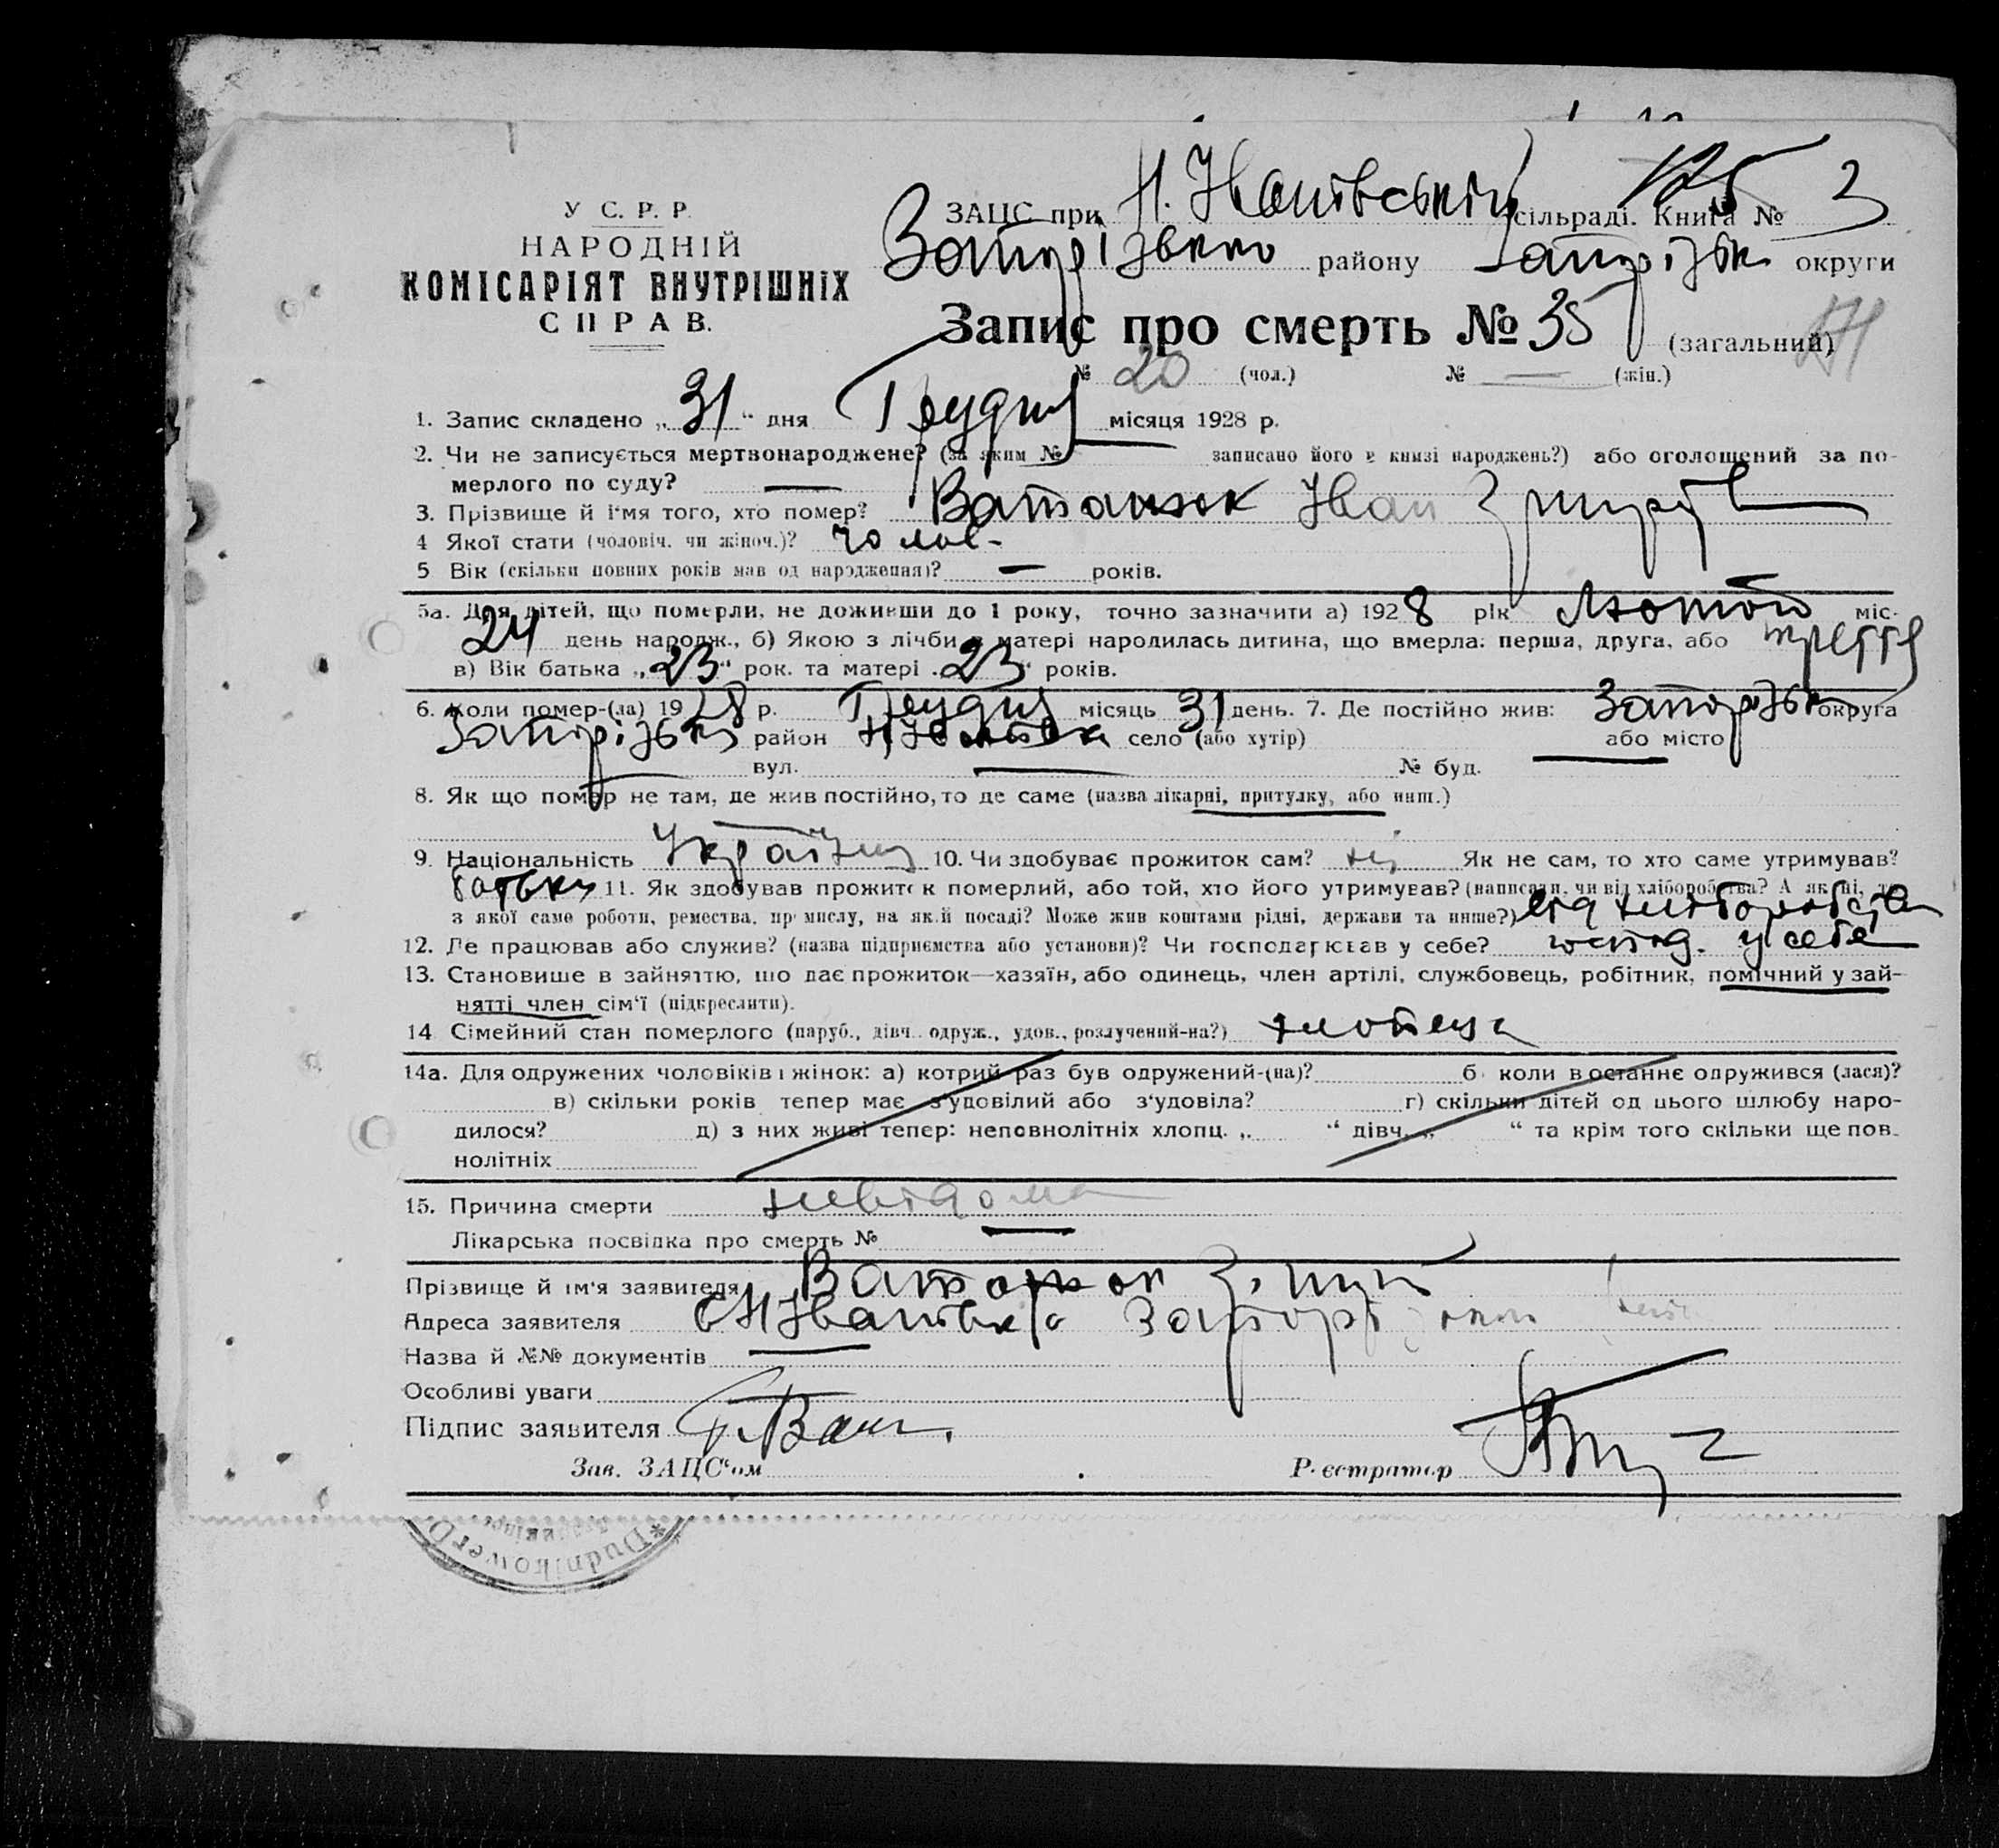 У С. Р. Р.
НАРОДНІЙ
КОМІСАРІЯТ ВНУТРІШНІХ
СПРАВ.
ЗАЦС при Н. Іванівській сільраді. Книга № 3
Запорізького району Запорізьк округи
Запис про смерть № 35 (загальний)
№ 20 (чол.) № — (жін.)
1. Запис складено „31“ дня Грудня місяця 1928 р.
2. Чи не записується мертвонароджене? (за яким № записано його в книзі народжень?) або оголошений за по-
мерлого по суду? —
3. Прізвище й ім'я того, хто помер? Іван
4 Якої стати (чоловіч. чи жіноч.)? чолов-
5 Вік (скільки повних років мав од народження)? — років.
5а. Для дітей, що померли, не доживши до 1 року, точно зазначити а) 1928 рік Лютого міс.
24 день народж., б) Якою з лічби в матері народилась дитина, що вмерла: перша, друга, або третя
в) Вік батька „23“ рок. та матері „23“ років.
6. Коли помер-(ла) 1928 р. Грудня місяць 31 день. 7. Де постійно жив: Запорізьк округа
Запорізьк район Н Іванівка село (або хутір) — або місто
вул. — № буд.
8. Як що помер не там, де жив постійно, то де саме (назва лікарні, притулку, або инш.)
9. Національність 10. Чи здобуває прожиток сам? ні Як не сам, то хто саме утримував?
батьки 11. Як здобував прожиток померлий, або той, хто його утримував? (написати, чи від хліборобства? А як ні, то
з якої саме роботи, ремества, промислу, на якій посаді? Може жив коштами рідні, держави та инше?) від хліборобства
12. Де працював або служив? (назва підприємства або установи)? Чи господарював у себе? господ. у себе
13. Становище в зайняттю, що дає прожиток—хазяїн, або одинець, член артілі, службовець, робітник, помічний у зай-
нятті член сім'ї (підкреслити).
14 Сімейний стан померлого (паруб., дівч. одруж., удов., розлучений-на?)
14а. Для одружених чоловіків і жінок: а) котрий раз був одружений-(на)? б) коли востаннє одружився (лася)?
в) скільки років тепер має з'удовілий або з'удовіла? г) скільки дітей од цього шлюбу наро-
дилося? д) з них живі тепер: неповнолітніх хлопц. „ “ дівч. „ “ та крім того скільки ще пов-
нолітніх
15. Причина смерти невідома
Лікарська посвідка про смерть № —
Прізвище й ім'я заявителя
Адреса заявителя с Н Іванівка
Назва й №№ документів —
Особливі уваги
Підпис заявителя
Зав. ЗАЦС'ом Реєстратор